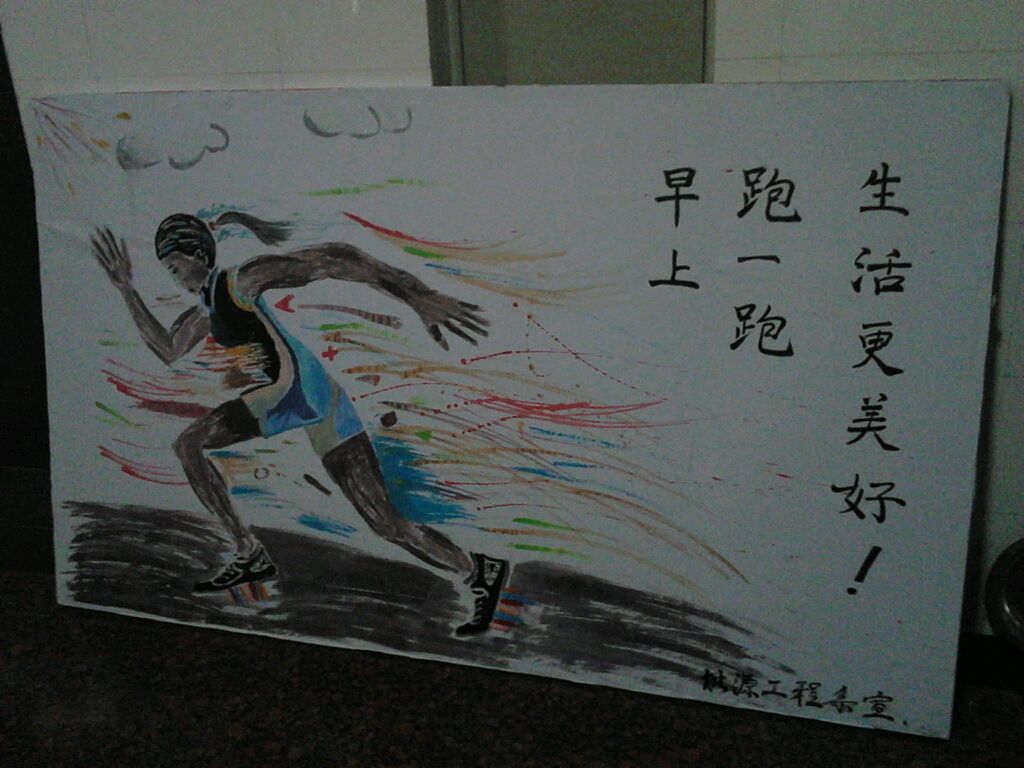 早上
跑一跑
生活更美好！
能源工程系宣.